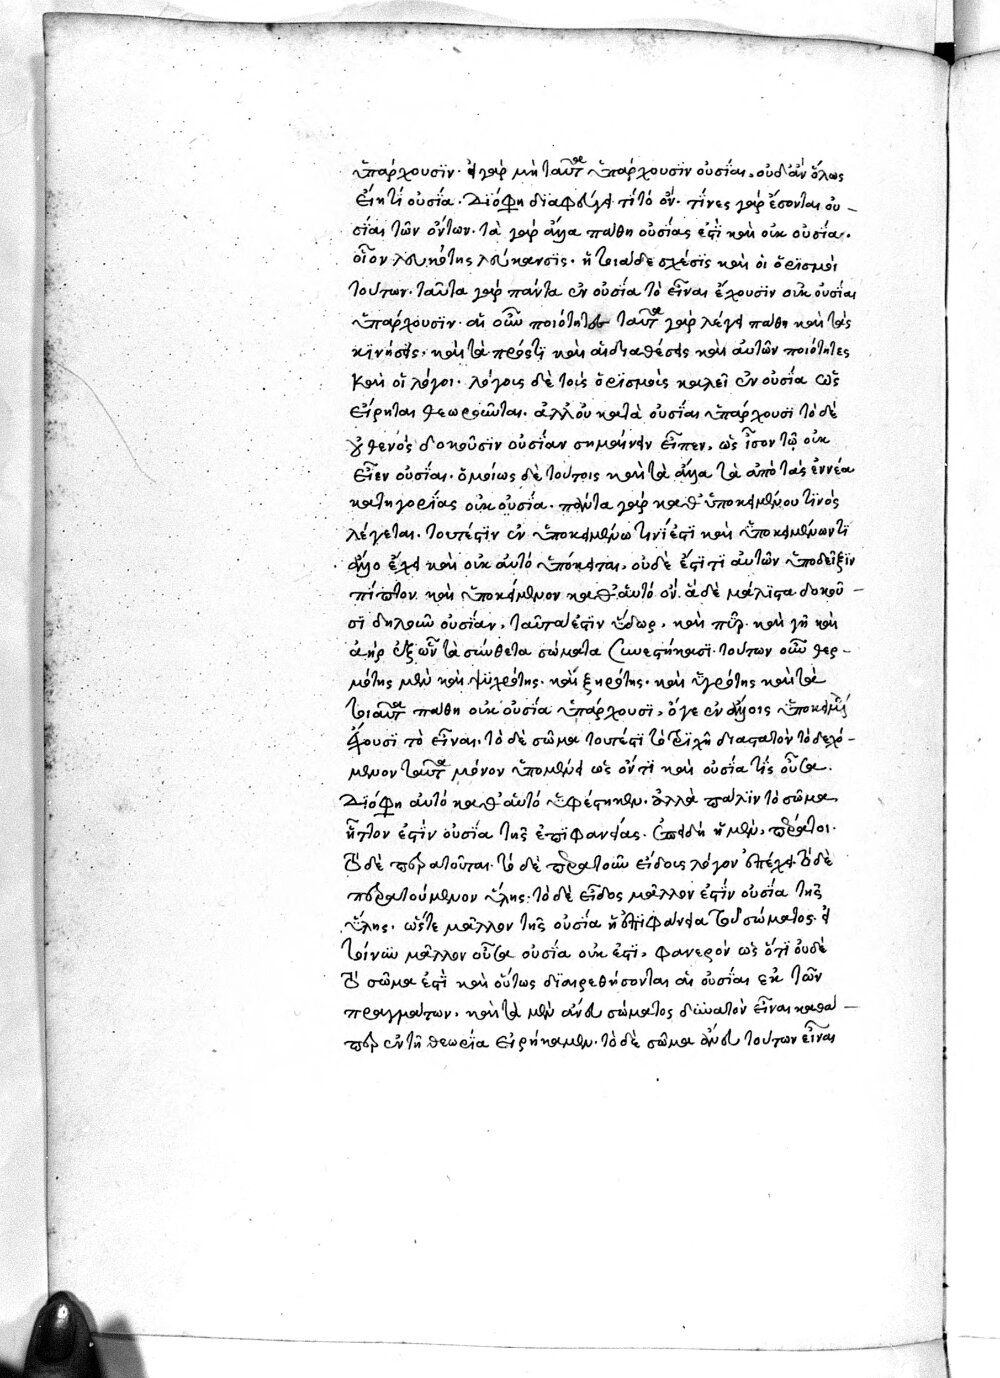 ὑπάρχουσιν. εἰ γὰρ μὴ ταῦτα ὑπάρχουσιν οὐσίαι, οὐδ' ἂν ὅλως
εἴη τί οὐσία. διόφη διαφεύγει τί τὸ ὄν. τίνες γὰρ ἔσονται οὐ-
σίαι τῶν ὄντων. τὰ γὰρ ἄλλα πάθη οὐσίας ἐστὶ καὶ οὐκ οὐσία.
οἷον λευκότης λεύκανσις. ἢ τοιάδε σχέσις καὶ οἱ ὁρισμοὶ
τούτων. ταῦτα γὰρ πάντα ἐν οὐσία τὸ εἶναι ἔχουσιν οὐκ οὐσίαι
ὑπάρχουσιν. αἱ οὖν ποιότητες ταῦτα γὰρ λέγει πάθη καὶ τὰς
κινήσεις. καὶ τὰ πρός τι καὶ αἱ διαθέσεις καὶ αὐτῶν ποιότητες
καὶ οἱ λόγοι. λόγοις δὲ τοὺς ὁρισμοὺς καλεῖ ἐν οὐσία ὡς
εἴρηται θεωροῦνται. ἀλλ' οὐ κατὰ οὐσίαι ὑπάρχουσι τὸ δὲ
οὐθενὸς δοκοῦσιν οὐσίαν σημαίνειν εἶπεν, ὡς ἴσον τῷ οὐκ
εἶεν οὐσίαι. ὁμοίως δὲ τούτοις καὶ τὰ ἄλλα τὰ ἀπὸ τὰς ἐννέα
κατηγορίας οὐκ οὐσία. πάντα γὰρ καθ' ὑποκειμένου τινὸς
λέγεται. τουτέστιν ἐν ὑποκειμένω τινί ἐστι καὶ ὑποκειμένων τι
ἄλλο ἔχει καὶ οὐκ αὐτὸ ὑπόκειται, οὐδέ ἐστί τι αὐτῶν ὑπόδειξιν
πίπτον καὶ ὑποκείμενον καθ' αὑτὸ ὄν. ἃ δὲ μάλιστα δοκοῦ-
σι δηλοῦν οὐσίαν, ταῦτα ἐστὶν ὕδωρ, καὶ πῦρ. καὶ γῆ καὶ
ἀὴρ ἐξ ὧν τὰ σύνθετα σώματα συνεστήκασι. τούτων οὖν θερ-
μότης μὲν καὶ ψυχρότης. καὶ ξηρότης. καὶ ὑγρότης καὶ τὰ
τοιαῦτα πάθη οὐκ οὐσία ὑπάρχουσι, ὅ γε ἐν ἄλλοις ὑποκειμένοις
ἔχουσι τὸ εἶναι. τὸ δὲ σῶμα τουτέστι τὸ τριχῆ διαστατὸν τὸ δεχό-
μενον ταῦτα μόνον ὑπομένει ὡς ὄν τι καὶ οὐσία τίς οὖσα.
διόφη αὐτὸ καθ' αὑτὸ ὑφέστηκεν. ἀλλὰ πάλιν τὸ σῶμα
ἧττον ἐστὶν οὐσία τῆς ἐπιφανείας. ἐπειδὴ ἡ μὲν, περατοῖ.
τὸ δὲ περατοῦται. τὸ δὲ περατοῦν εἴδους λόγον ἐπέχει τὸ δὲ
περατούμενον ὕλης. τὸ δὲ εἶδος μᾶλλον ἐστὶν οὐσία τῆς
ὕλης. ὥστε μᾶλλον τῆς οὐσία ἡ ἐπιφάνεια τοῦ σώματος. εἰ
τοίνυν μᾶλλον οὖσα οὐσία οὐκ ἐστὶ, φανερὸν ὡς ὅτι οὐδὲ
τὸ σῶμα ἐστὶ καὶ οὕτως διαιρεθήσονται αἱ οὐσίαι ἐκ τῶν
πραγμάτων. καὶ τὰ μὲν ἄνευ σώματος δυνατὸν εἶναι καθά-
περ ἐν τῆ θεωρία εἰρήκαμεν. τὸ δὲ σῶμα ἄνευ τούτων εἶναι